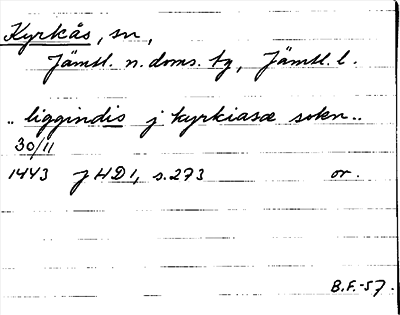 Kyrkås, sn,
Jämtl. n. doms. tg, Jämtl. l.
.. liggindis j kyrkiasæ sokn..
30/11
1443 JHD1, s. 273 or.
B.F.-57.